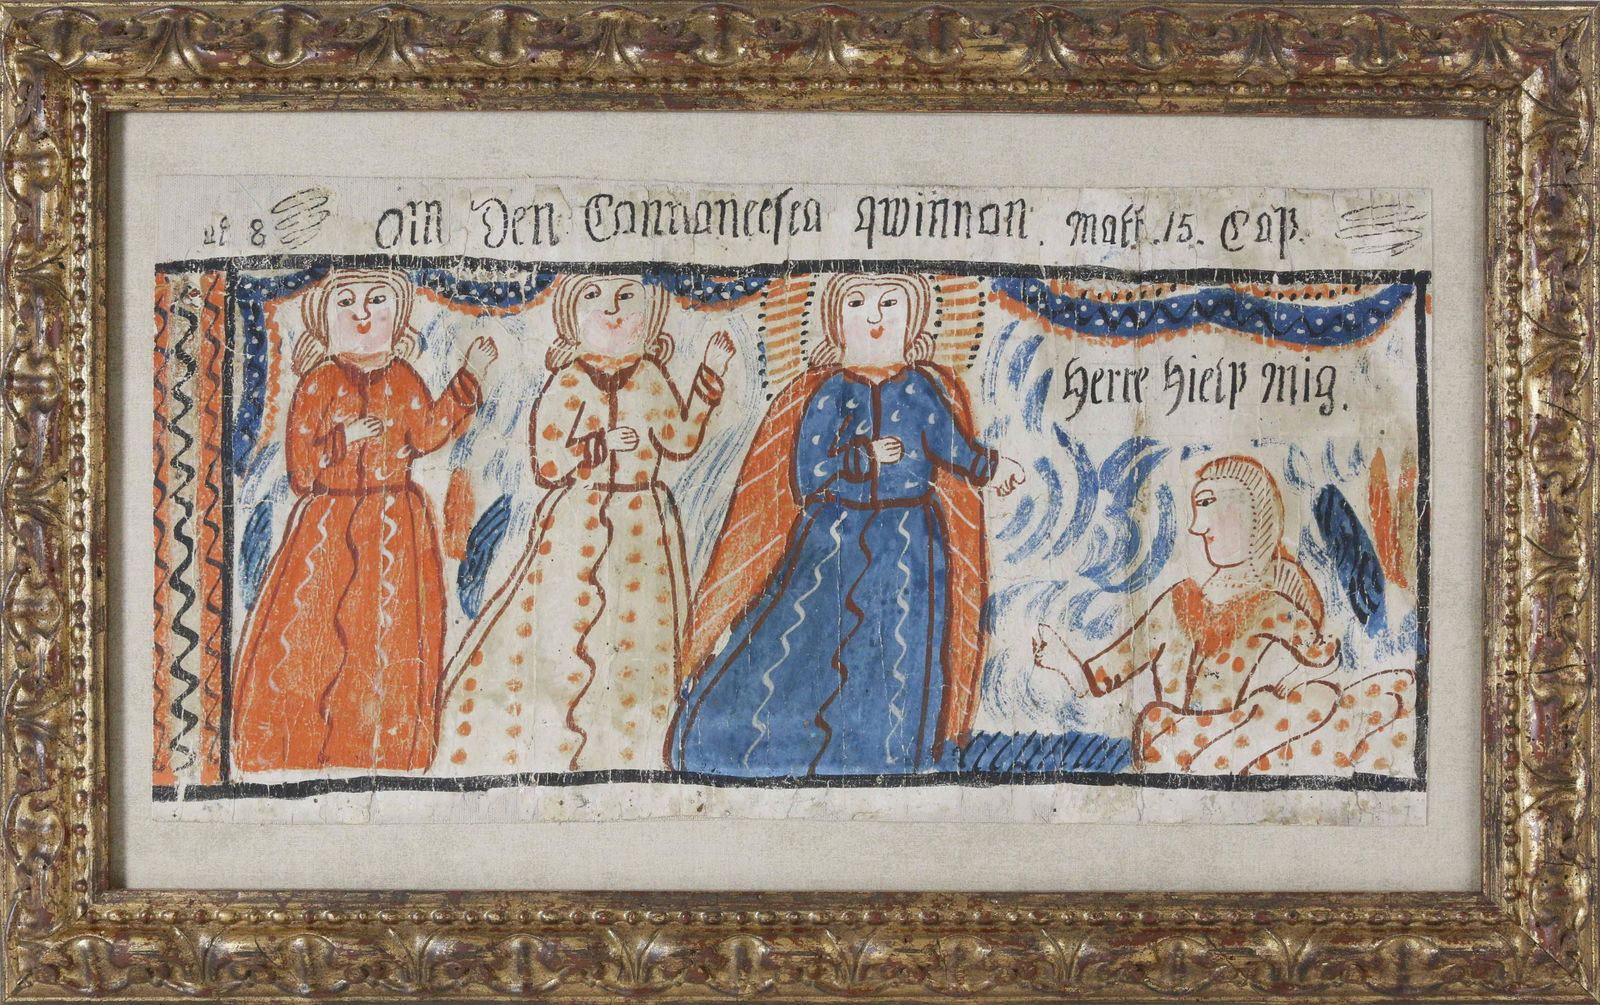 8 Om Den Cannaneesca qwinnan. Matt. 15. Cap.
Herre hielp mig.